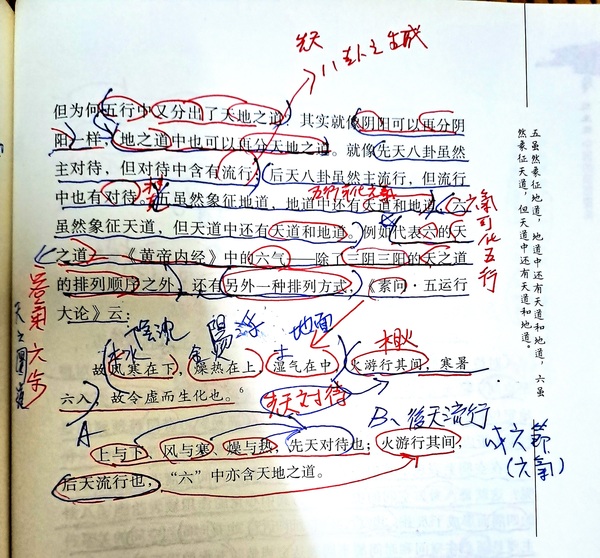 先天
八卦主生成
但为何五行中又分出了天地之道，其实就像阴阳可以再分阴
阳一样，地之道中也可以再分天地之道。就像先天八卦虽然
主对待，但对待中含有流行；后天八卦虽然主流行，但流行
中也有对待。五虽然象征地道，地道中还有天道和地道，六
虽然象征天道，但天道中还有天道和地道。例如代表六的天
之道——《黄帝内经》中的六气——除了三阴三阳的天之道
的排列顺序之外，还有另外一种排列方式，《素问·五运行
大论》云：
六氣可化五行
陰沈
陽浮
地面
木水
土
故风寒在下，燥热在上，湿气在中，火游行其间，寒暑
六入，故令虚而生化也。6
先天对待
A
B、後天流行
上与下、风与寒、燥与热，先天对待也；火游行其间，
后天流行也，“六”中亦含天地之道。
成六節
(六氣)
五虽然象征地道，地道中还有天道和地道，六虽
然象征天道，但天道中还有天道和地道。